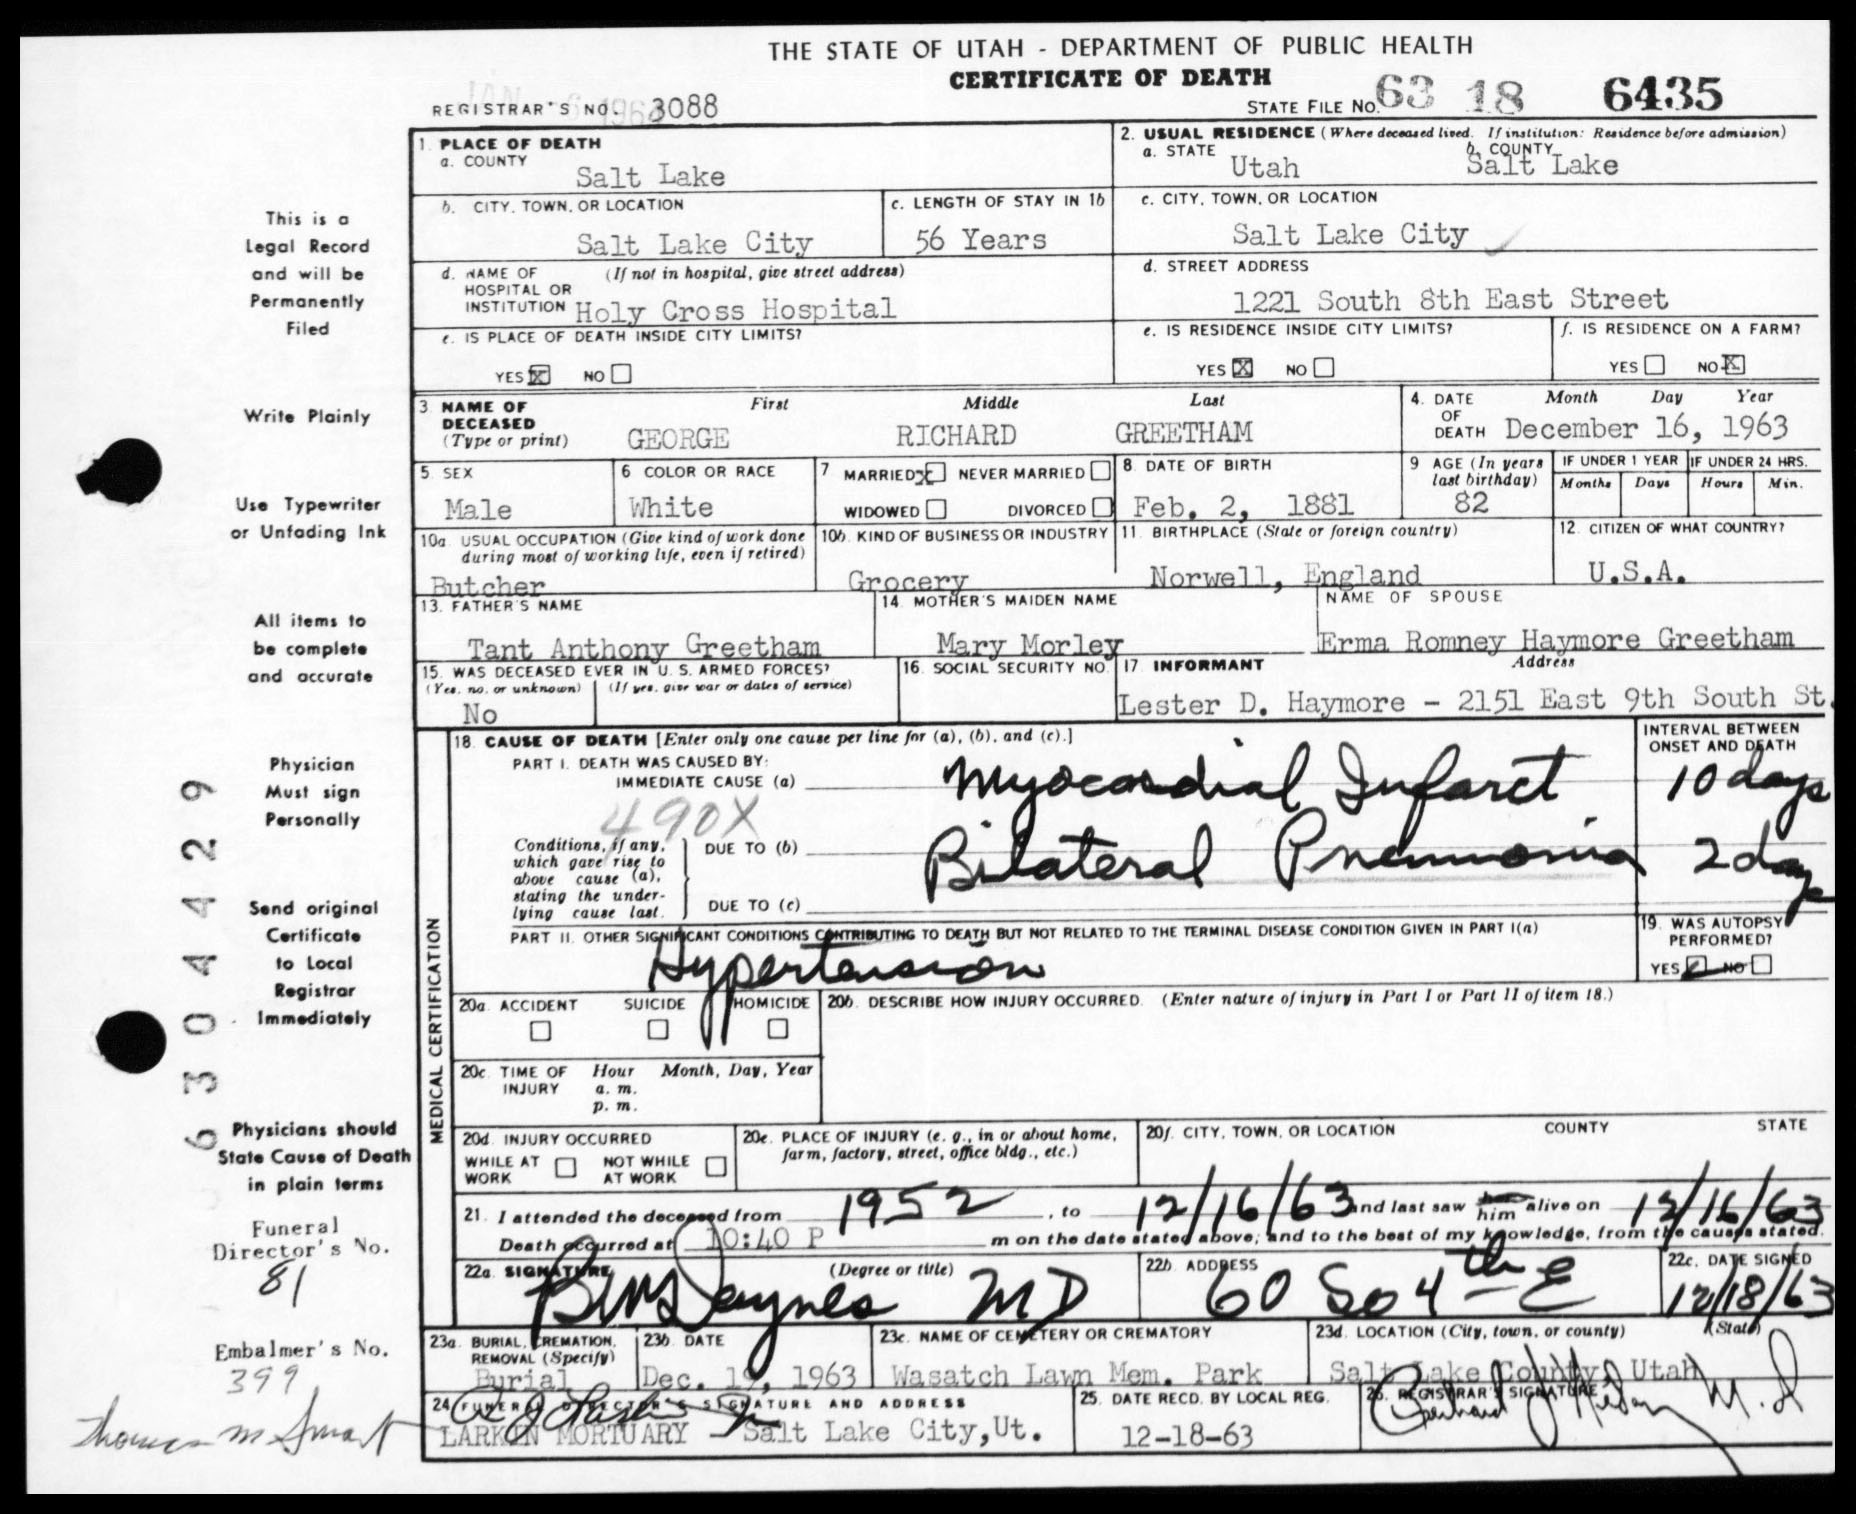 THE STATE OF UTAH - DEPARTMENT OF PUBLIC HEALTH
CERTIFICATE OF DEATH
REGISTRAR'S NO. 3088
STATE FILE NO. 63 18 6435
1. PLACE OF DEATH
a. COUNTY
Salt Lake
2. USUAL RESIDENCE (Where deceased lived. If institution: Residence before admission)
a. STATE Utah
b. COUNTY Salt Lake
b. CITY, TOWN, OR LOCATION
Salt Lake City
c. LENGTH OF STAY IN 1b
56 Years
c. CITY, TOWN, OR LOCATION
Salt Lake City
d. NAME OF HOSPITAL OR INSTITUTION (If not in hospital, give street address)
Holy Cross Hospital
d. STREET ADDRESS
1221 South 8th East Street
e. IS PLACE OF DEATH INSIDE CITY LIMITS?
YES X NO
e. IS RESIDENCE INSIDE CITY LIMITS?
YES X NO
f. IS RESIDENCE ON A FARM?
YES NO X
3. NAME OF DECEASED (Type or print)
First Middle Last
GEORGE RICHARD GREETHAM
4. DATE OF DEATH Month Day Year
December 16, 1963
5. SEX
Male
6. COLOR OR RACE
White
7. MARRIED X NEVER MARRIED
WIDOWED DIVORCED
8. DATE OF BIRTH
Feb. 2, 1881
9. AGE (In years last birthday)
82
IF UNDER 1 YEAR
Months Days
IF UNDER 24 HRS.
Hours Min.
10a. USUAL OCCUPATION (Give kind of work done during most of working life, even if retired)
Butcher
10b. KIND OF BUSINESS OR INDUSTRY
Grocery
11. BIRTHPLACE (State or foreign country)
Norwell, England
12. CITIZEN OF WHAT COUNTRY?
U.S.A.
13. FATHER'S NAME
Tant Anthony Greetham
14. MOTHER'S MAIDEN NAME
Mary Morley
NAME OF SPOUSE
Erma Romney Haymore Greetham
15. WAS DECEASED EVER IN U. S. ARMED FORCES?
(Yes, no, or unknown) (If yes, give war or dates of service)
No
16. SOCIAL SECURITY NO.
17. INFORMANT Address
Lester D. Haymore - 2151 East 9th South St.
MEDICAL CERTIFICATION
18. CAUSE OF DEATH [Enter only one cause per line for (a), (b), and (c).]
PART I. DEATH WAS CAUSED BY:
IMMEDIATE CAUSE (a) Myocardial Infarct
INTERVAL BETWEEN ONSET AND DEATH
10 days
490X
Conditions, if any, which gave rise to above cause (a), stating the underlying cause last.
DUE TO (b) Bilateral Pneumonia 2 days
DUE TO (c)
PART II. OTHER SIGNIFICANT CONDITIONS CONTRIBUTING TO DEATH BUT NOT RELATED TO THE TERMINAL DISEASE CONDITION GIVEN IN PART I(a)
Hypertension
19. WAS AUTOPSY PERFORMED?
YES NO
20a. ACCIDENT SUICIDE HOMICIDE
20b. DESCRIBE HOW INJURY OCCURRED. (Enter nature of injury in Part I or Part II of item 18.)
20c. TIME OF INJURY Hour Month, Day, Year
a. m.
p. m.
20d. INJURY OCCURRED
WHILE AT WORK NOT WHILE AT WORK
20e. PLACE OF INJURY (e. g., in or about home, farm, factory, street, office bldg., etc.)
20f. CITY, TOWN, OR LOCATION COUNTY STATE
21. I attended the deceased from 1952, to 12/16/63 and last saw him alive on 12/16/63
Death occurred at 10:40 P m on the date stated above; and to the best of my knowledge, from the causes stated.
22a. SIGNATURE (Degree or title)
MD
22b. ADDRESS
60 So 4th E
22c. DATE SIGNED
12/18/63
23a. BURIAL, CREMATION, REMOVAL (Specify)
Burial
23b. DATE
Dec. 19, 1963
23c. NAME OF CEMETERY OR CREMATORY
Wasatch Lawn Mem. Park
23d. LOCATION (City, town, or county) (State)
Salt Lake County, Utah
24. FUNERAL DIRECTOR'S SIGNATURE AND ADDRESS
LARKIN MORTUARY - Salt Lake City, Ut.
25. DATE RECD. BY LOCAL REG.
12-18-63
26. REGISTRAR'S SIGNATURE
This is a
Legal Record
and will be
Permanently
Filed
Write Plainly
Use Typewriter
or Unfading Ink
All items to
be complete
and accurate
Physician
Must sign
Personally
Send original
Certificate
to Local
Registrar
Immediately
Physicians should
State Cause of Death
in plain terms
Funeral
Director's No.
81
Embalmer's No.
399
Thomas M Smart
6304429